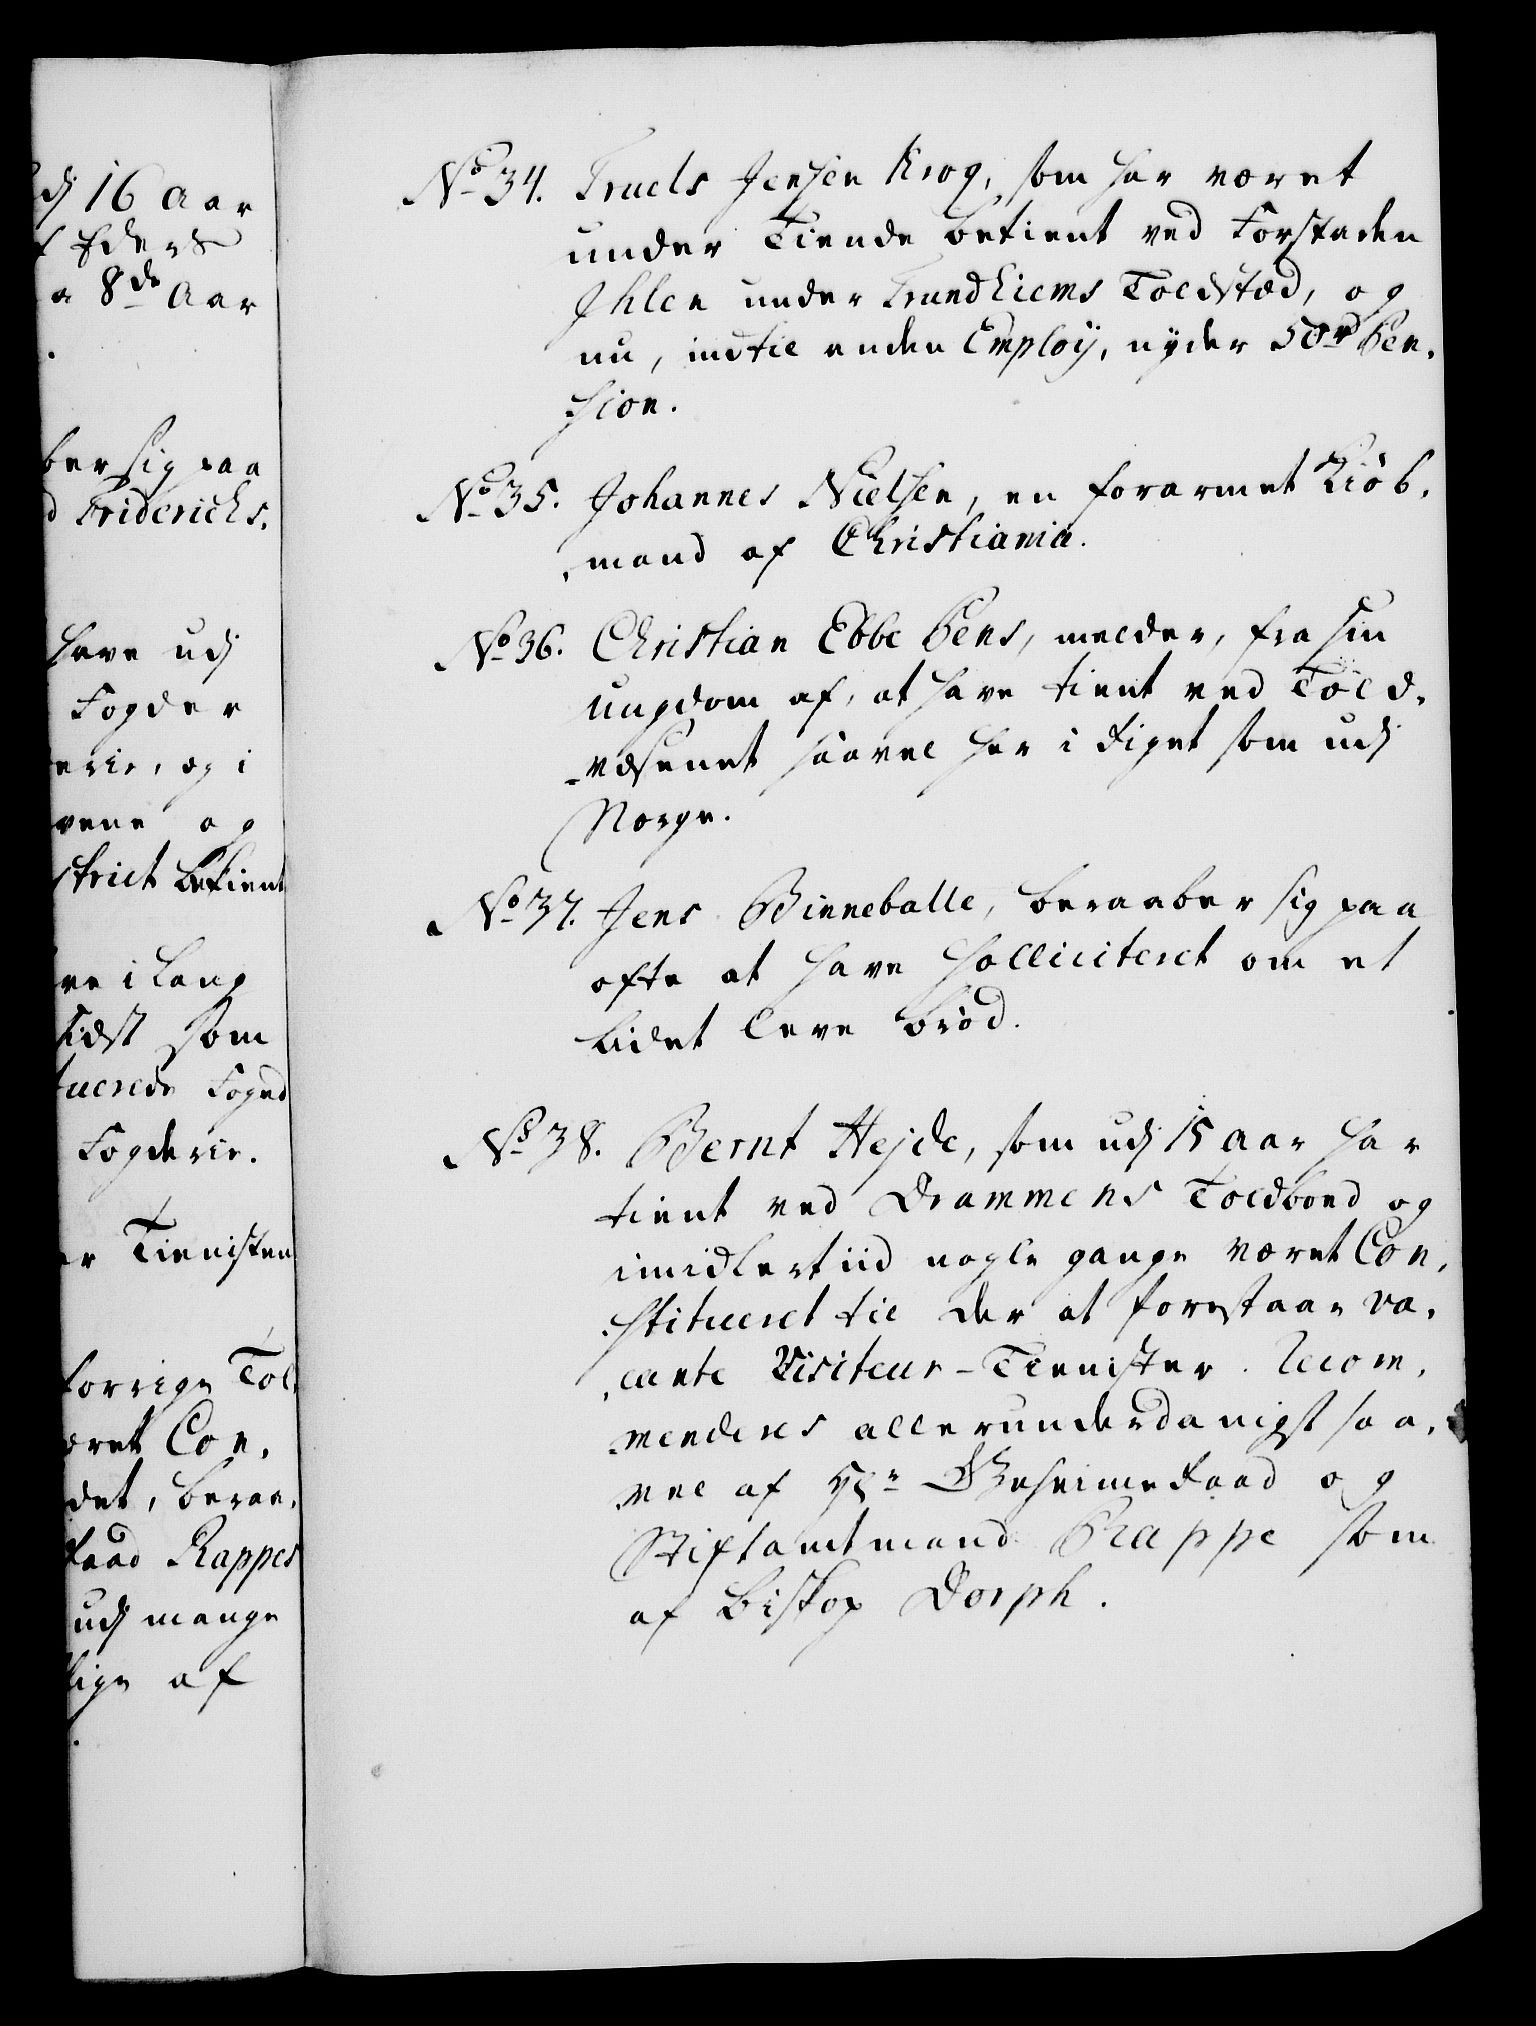 dj 16 Aar
f Eders
a 8de Aar
ber sig paa
d Friderichs.
have udj
Fogder
erie, og i
vene og
strict betient
ve i lang
sidst som
tuerede Foged
Fogderie.
er Tienisten
forrige Tol,
æret Con,
det, beraa,
Raad Rappes
udj mange
lige af
No 34. Truels Jensen Krog, som har været
under Tiende betient ved Forstaden
Ihlen under Trundhiems Toldstæd, og
nu, indtil anden Employ, nyder 50 rd Pen,
,sion.
No 35. Johannes Nielsen, en forarmet Kiøb,
,mand af Christiania.
No 36. Christian Ebbe Bens, melder, fra sin
ungdom af, at have tient ved Told,
,væsenet saavel her i Riget som udj
Norge.
No 37. Jens Binneballe, beraaber sig paa
ofte at have solliciteret om et
lidet leve brød.
No 38. Bernt Hejde, som udj 15 Aar har
tient ved Drammens Toldboed og
imidlertiid nogle gange været Con,
,stitueret til der at forestaae va,
,cante Visiteur-Tienister. Recom,
,menderes allerunderdanigst saa,
,vel af Hr. Geheimeraad og
Stiftamtmand Rappe som
af Biskop Dorph.